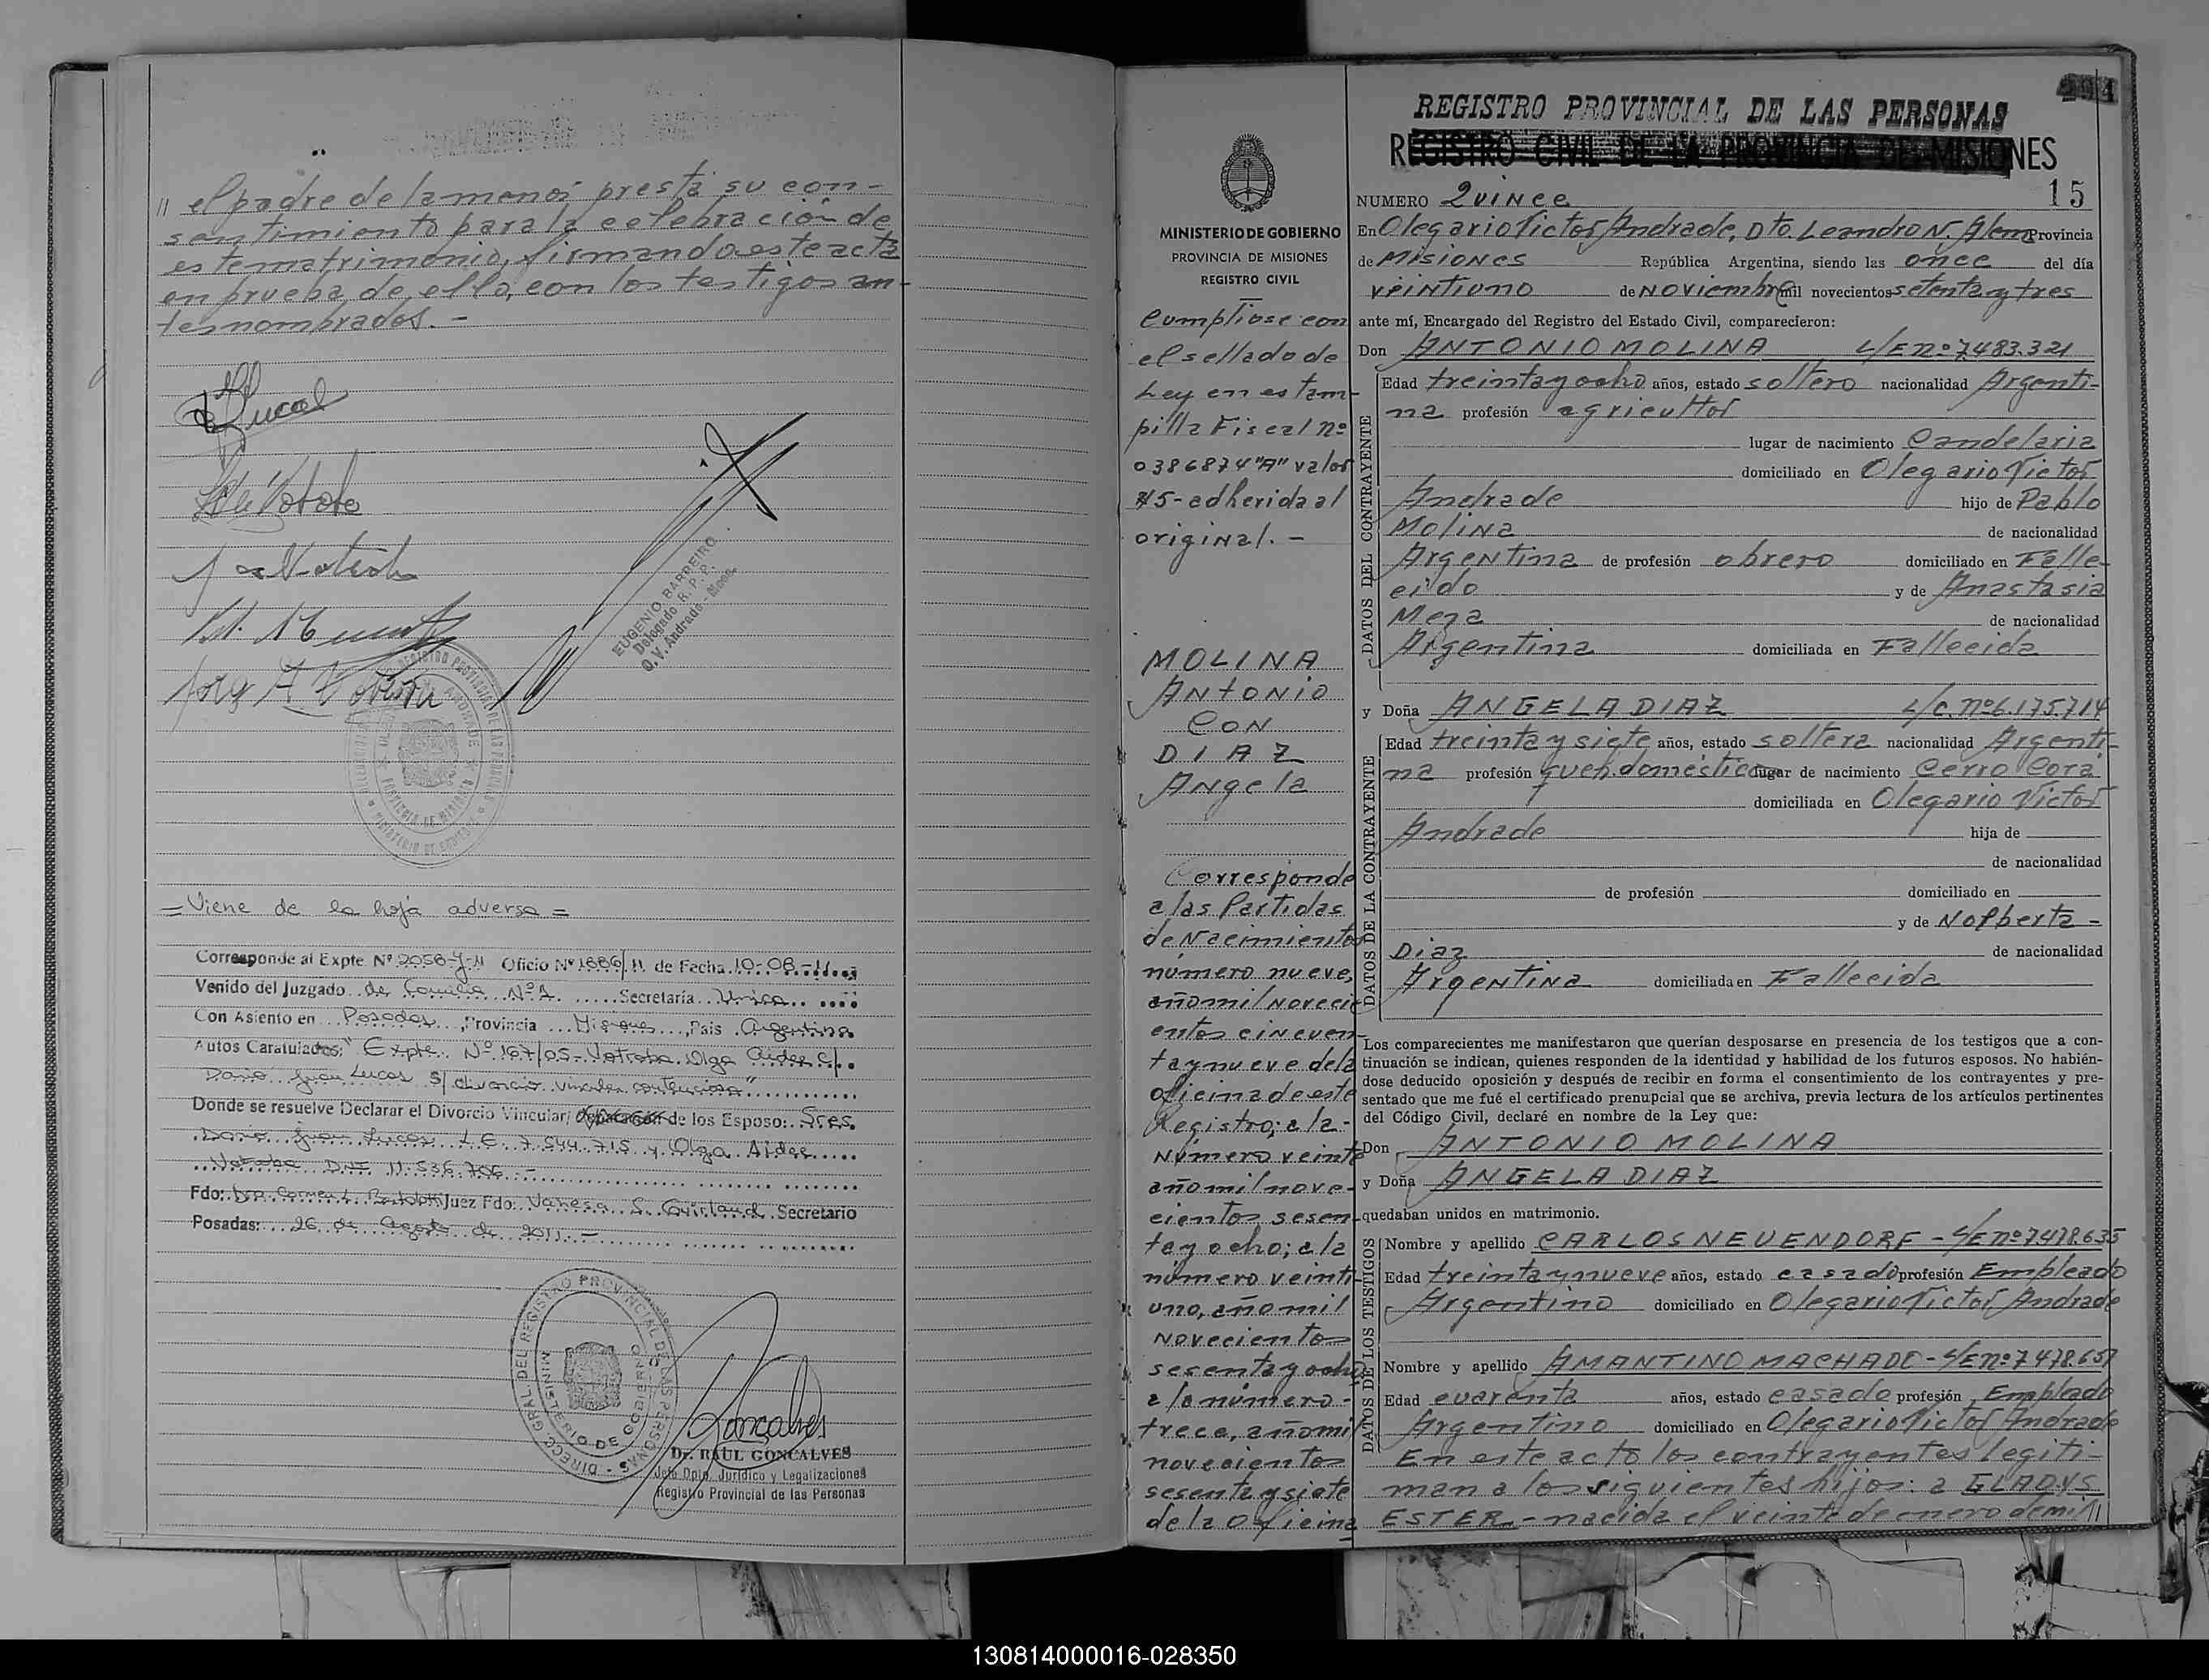 // el padre de la menor presta su con-
sentimiento para la celebración de
este matrimonio, firmando este acta
en prueba de ello, con los testigos an-
tes nombrados.-
EUGENIO BARREIRO
Delegado R.P.P.
O.V. Andrade - Mnes.
= Viene de la hoja adversa =
Corresponde al Expte. Nº 2058-J-11 Oficio Nº 1886/11 de Fecha 10-08-11
Venido del Juzgado de Familia Nº 1 Secretaría Única
Con Asiento en Posadas, Provincia Misiones, Pais Argentina
Autos Caratulados: "Expte. Nº 167/05- Votroba Olga Aidee c/
Dario Juan Lucas s/ divorcio vincular contencioso"
Donde se resuelve Declarar el Divorcio Vincular/ de los Esposo: Sres.
Dario Juan Lucas L.E. 7.544.715 y Olga Aidee
Votroba DNI 11.536.706.-
Fdo: Dra Carmen L. Juez Fdo: Vanesa S. Secretario
Posadas: 26 de Agosto de 2011.-
DIRECC. GRAL. DEL REGISTRO PROVINCIAL DE LAS PERSONAS
MINISTERIO DE GOBIERNO
Goncalves
Dr. RAUL GONCALVES
Jefe Dpto. Jurídico y Legalizaciones
Registro Provincial de las Personas
MINISTERIO DE GOBIERNO
PROVINCIA DE MISIONES
REGISTRO CIVIL
Cumpliose con
el sellado de
Ley en estam-
pilla Fiscal nº
0386874 "A" valor
$5- adherida al
original.-
MOLINA
ANTONIO
CON
DIAZ
Angela
Corresponde
a las Partidas
de Nacimientos
número nueve,
año mil noveci
entos cincuen-
ta y nueve de la
oficina de este
Registro; a la-
Número veinte
año mil nove-
cientos sesen-
ta y ocho; a la
número veinti-
uno, año mil
novecientos
sesenta y ocho
a la número-
trece, año mil
novecientos
sesenta y siete
de la Oficina
REGISTRO PROVINCIAL DE LAS PERSONAS
REGISTRO CIVIL DE LA PROVINCIA DE MISIONES
15
NUMERO Quince
En Olegario Victor Andrade, Dto. Leandro N. Alem Provincia
de Misiones República Argentina, siendo las once del día
veintiuno de Noviembre mil novecientos setenta y tres
ante mí, Encargado del Registro del Estado Civil, comparecieron:
Don ANTONIO MOLINA L/E nº 7.483.321
DATOS DEL CONTRAYENTE
Edad treinta y ocho años, estado soltero nacionalidad Argenti-
na profesión agricultor
lugar de nacimiento Candelaria
domiciliado en Olegario Victor
Andrade hijo de Pablo
Molina de nacionalidad
Argentina de profesión obrero domiciliado en Falle-
cido y de Anastasia
Meza de nacionalidad
Argentina domiciliada en Fallecida
y Doña ANGELA DIAZ L/C. nº 6.175.714
DATOS DE LA CONTRAYENTE
Edad treinta y siete años, estado soltera nacionalidad Argenti-
na profesión queh. domésticos lugar de nacimiento Cerro Corá
domiciliada en Olegario Victor
Andrade hija de
de nacionalidad
de profesión domiciliado en
y de Norberta -
Diaz de nacionalidad
Argentina domiciliada en Fallecida
Los comparecientes me manifestaron que querían desposarse en presencia de los testigos que a con-
tinuación se indican, quienes responden de la identidad y habilidad de los futuros esposos. No habién-
dose deducido oposición y después de recibir en forma el consentimiento de los contrayentes y pre-
sentado que me fué el certificado prenupcial que se archiva, previa lectura de los artículos pertinentes
del Código Civil, declaré en nombre de la Ley que:
Don ANTONIO MOLINA
y Doña ANGELA DIAZ
quedaban unidos en matrimonio.
DATOS DE LOS TESTIGOS
Nombre y apellido CARLOS NEUENDORF - L/E nº 7.478.635
Edad treinta y nueve años, estado casado profesión Empleado
Argentino domiciliado en Olegario Victor Andrade
Nombre y apellido AMANTINO MACHADO - L/E nº 7.478.657
Edad cuarenta años, estado casado profesión Empleado
Argentino domiciliado en Olegario Victor Andrade
En este acto los contrayentes legiti-
man a los siguientes hijos: a GLADYS
ESTER.- nacida el veinte de enero de mil //
130814000016-028350